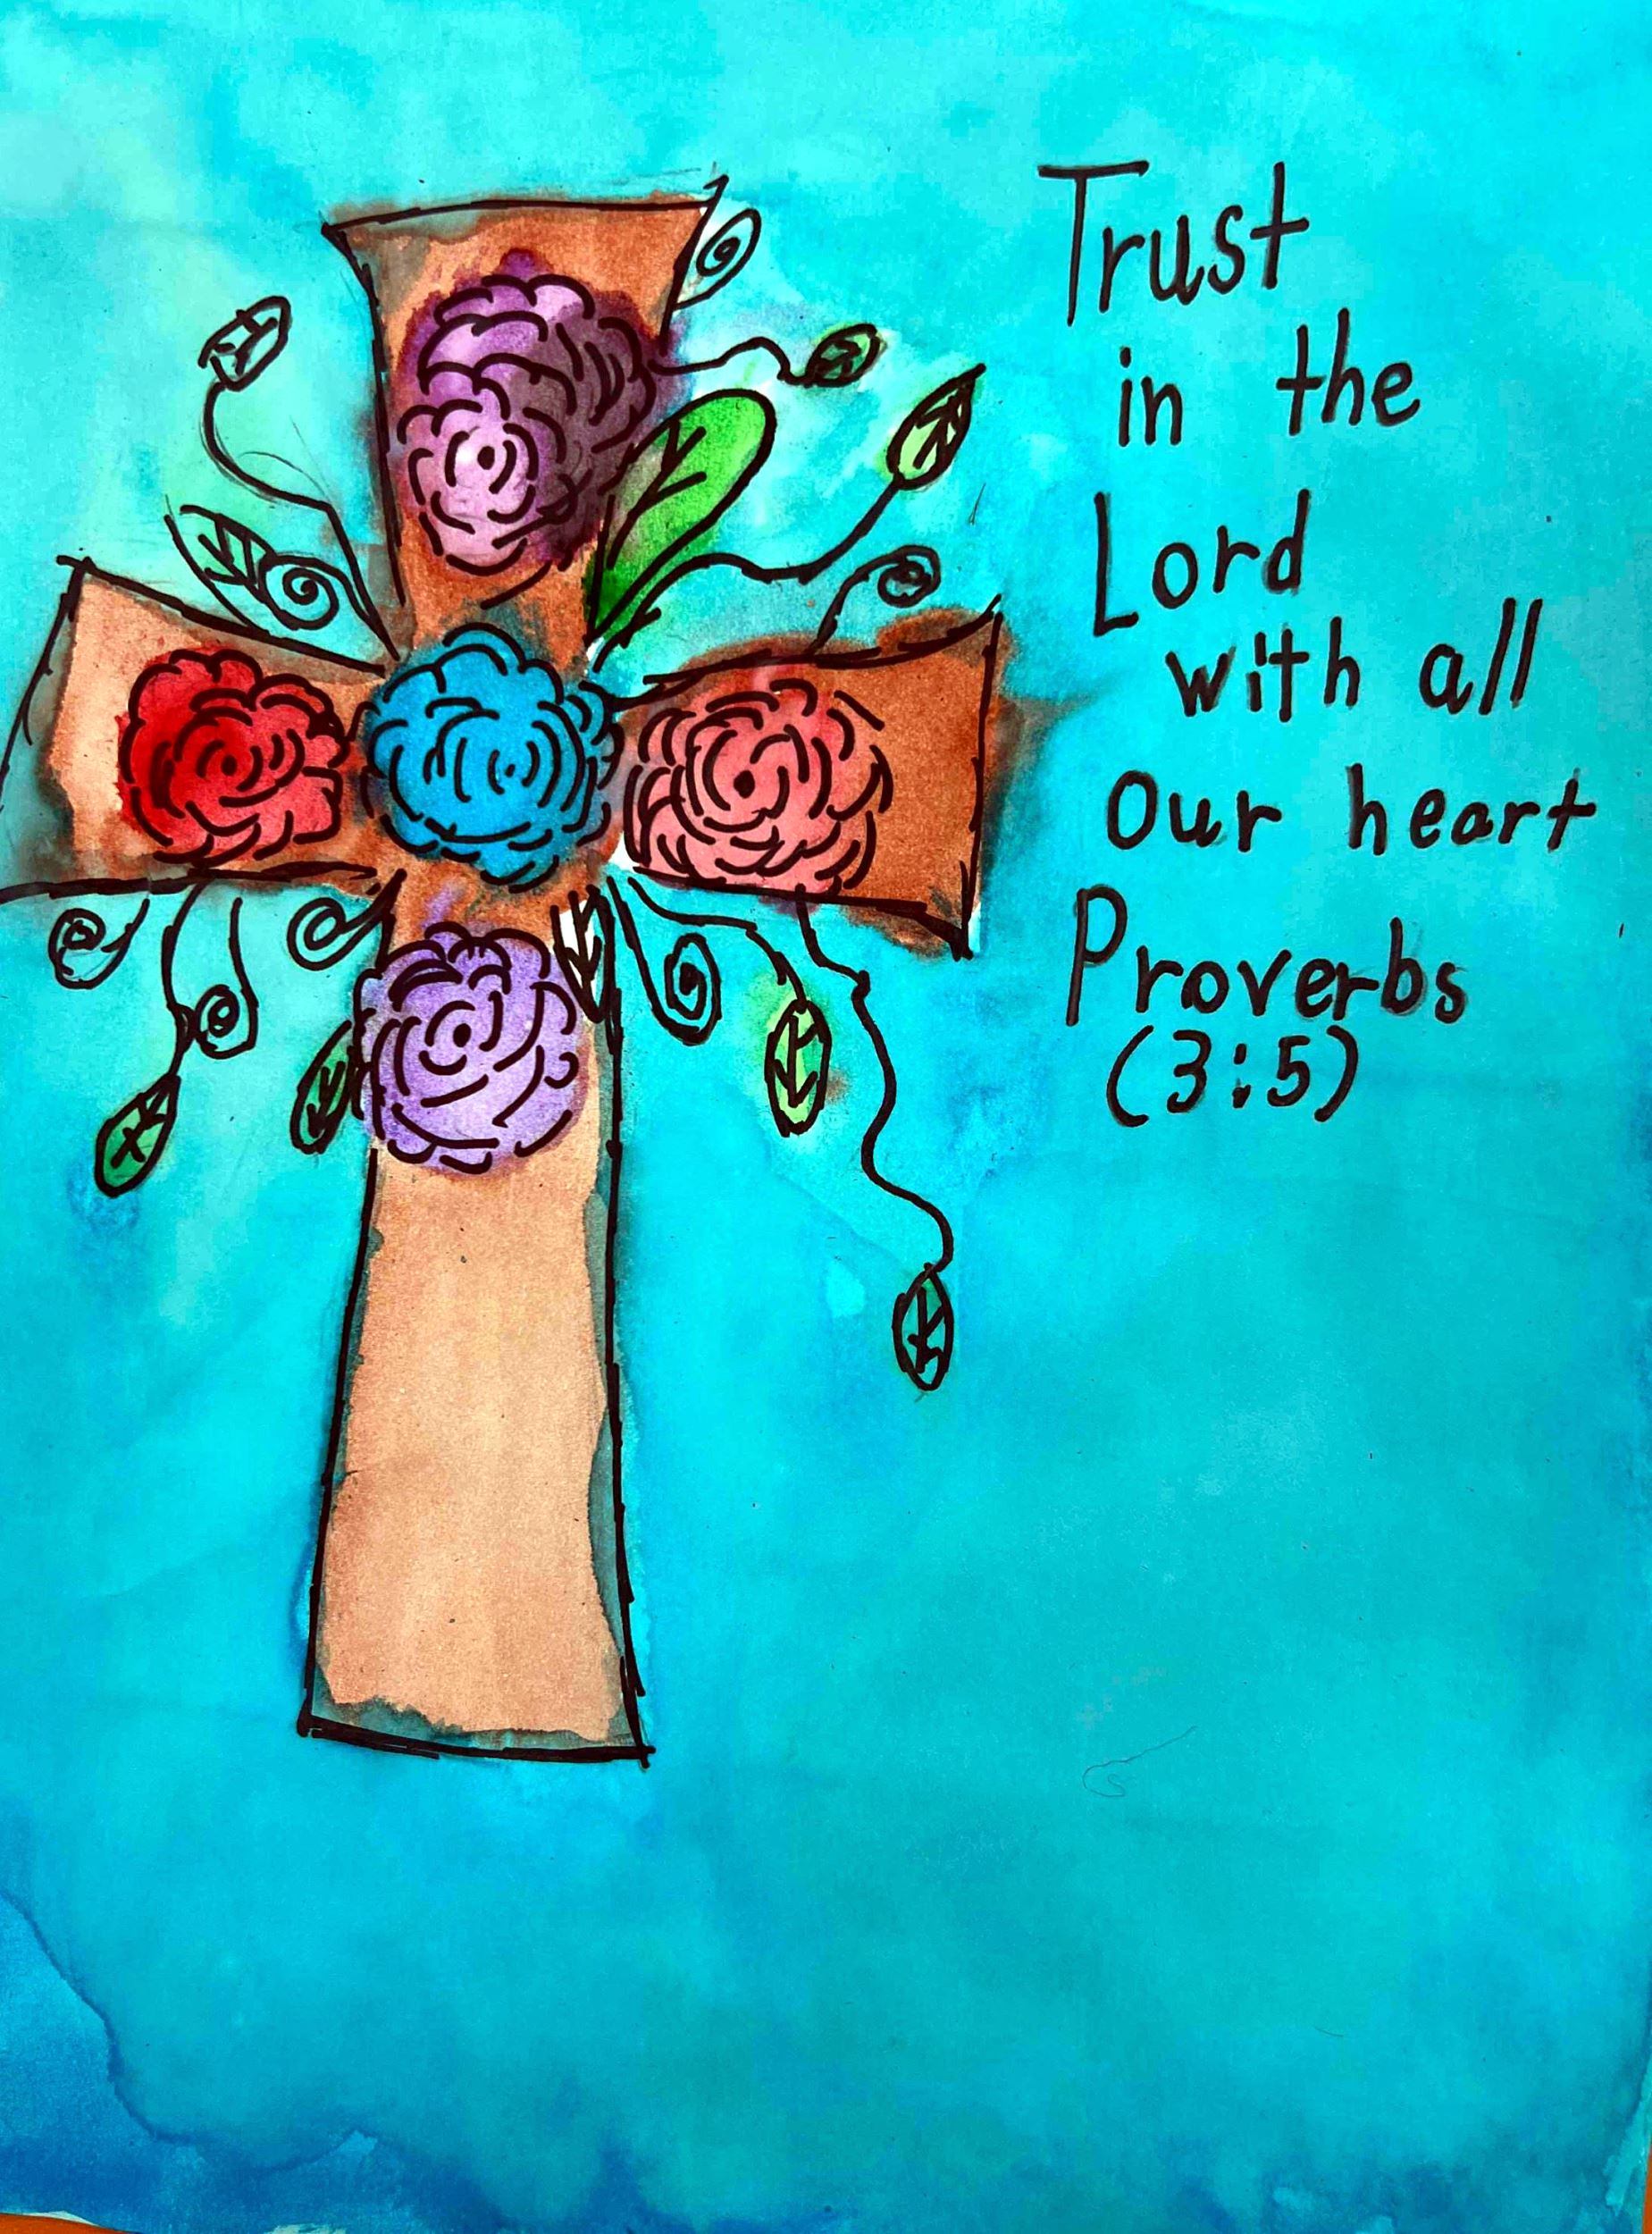 Trust
in the
Lord
with all
our heart
Proverbs
(3:5)